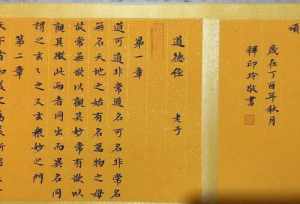 歲在丁酉年秋月
釋印玲敬書
道德经
老子
第一章
道可道非常道名可名非常名
無名天地之始有名萬物之母
故常無欲以觀其妙常有欲以
觀其徼此兩者同出而異名同
謂之玄〻之又玄衆妙之門
第二章